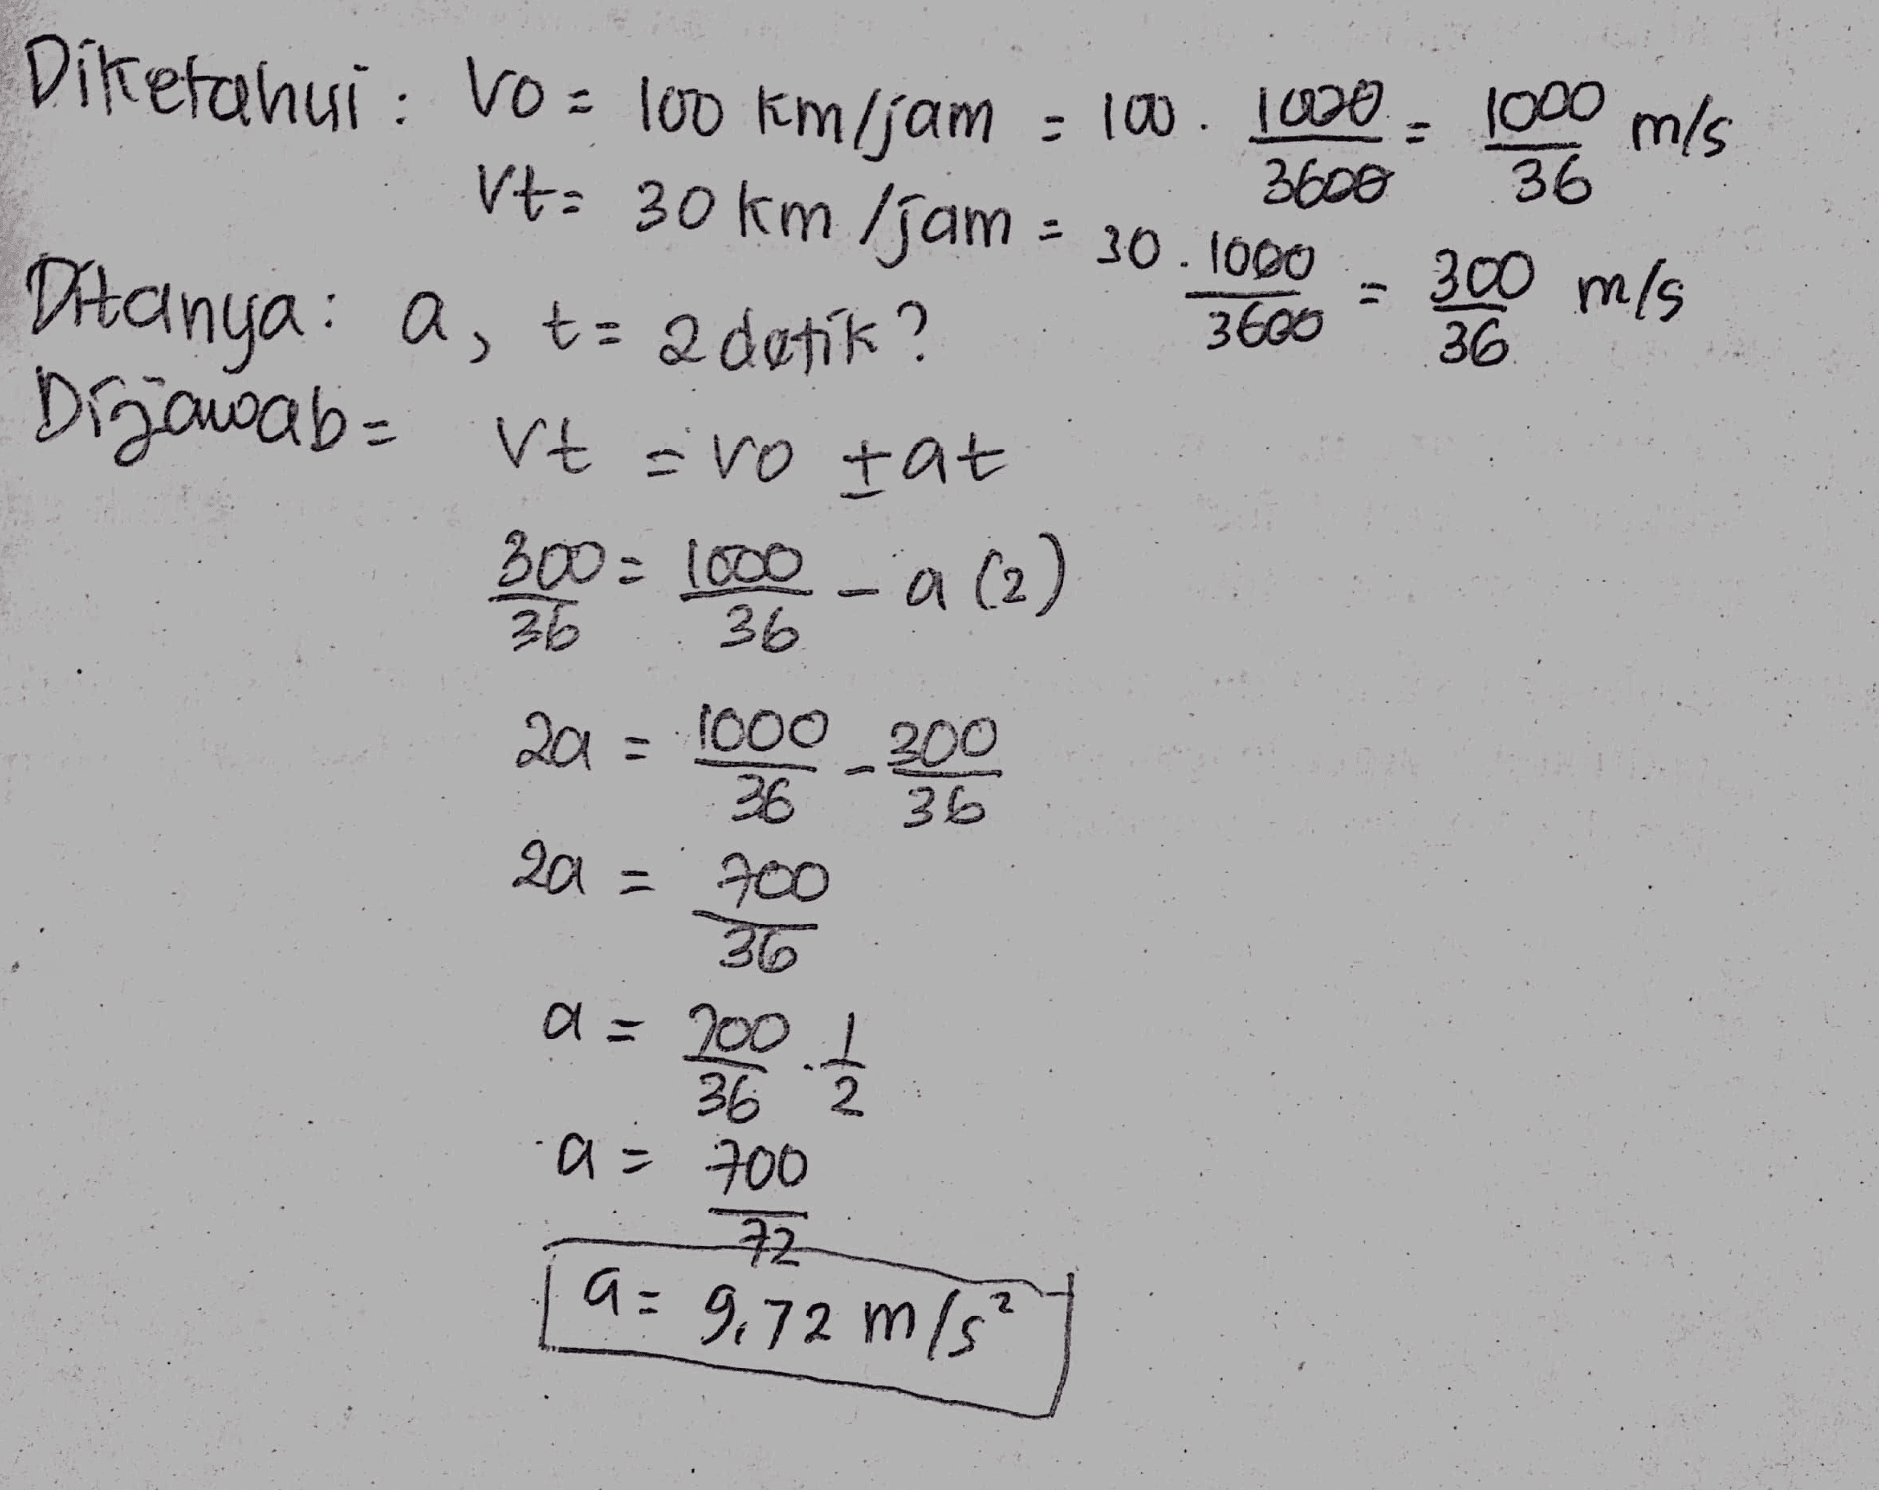 Diketahui : Vo = 100 km/jam = 100 . 1000/3600 = 1000/36 m/s
Vt = 30 km/jam = 30 . 1000/3600 = 300/36 m/s
Ditanya : a, t = 2 detik?
Dijawab = Vt = vo ± at
300/36 = 1000/36 - a (2)
2a = 1000/36 - 300/36
2a = 700/36
a = 700/36 . 1/2
a = 700/72
a = 9,72 m/s²